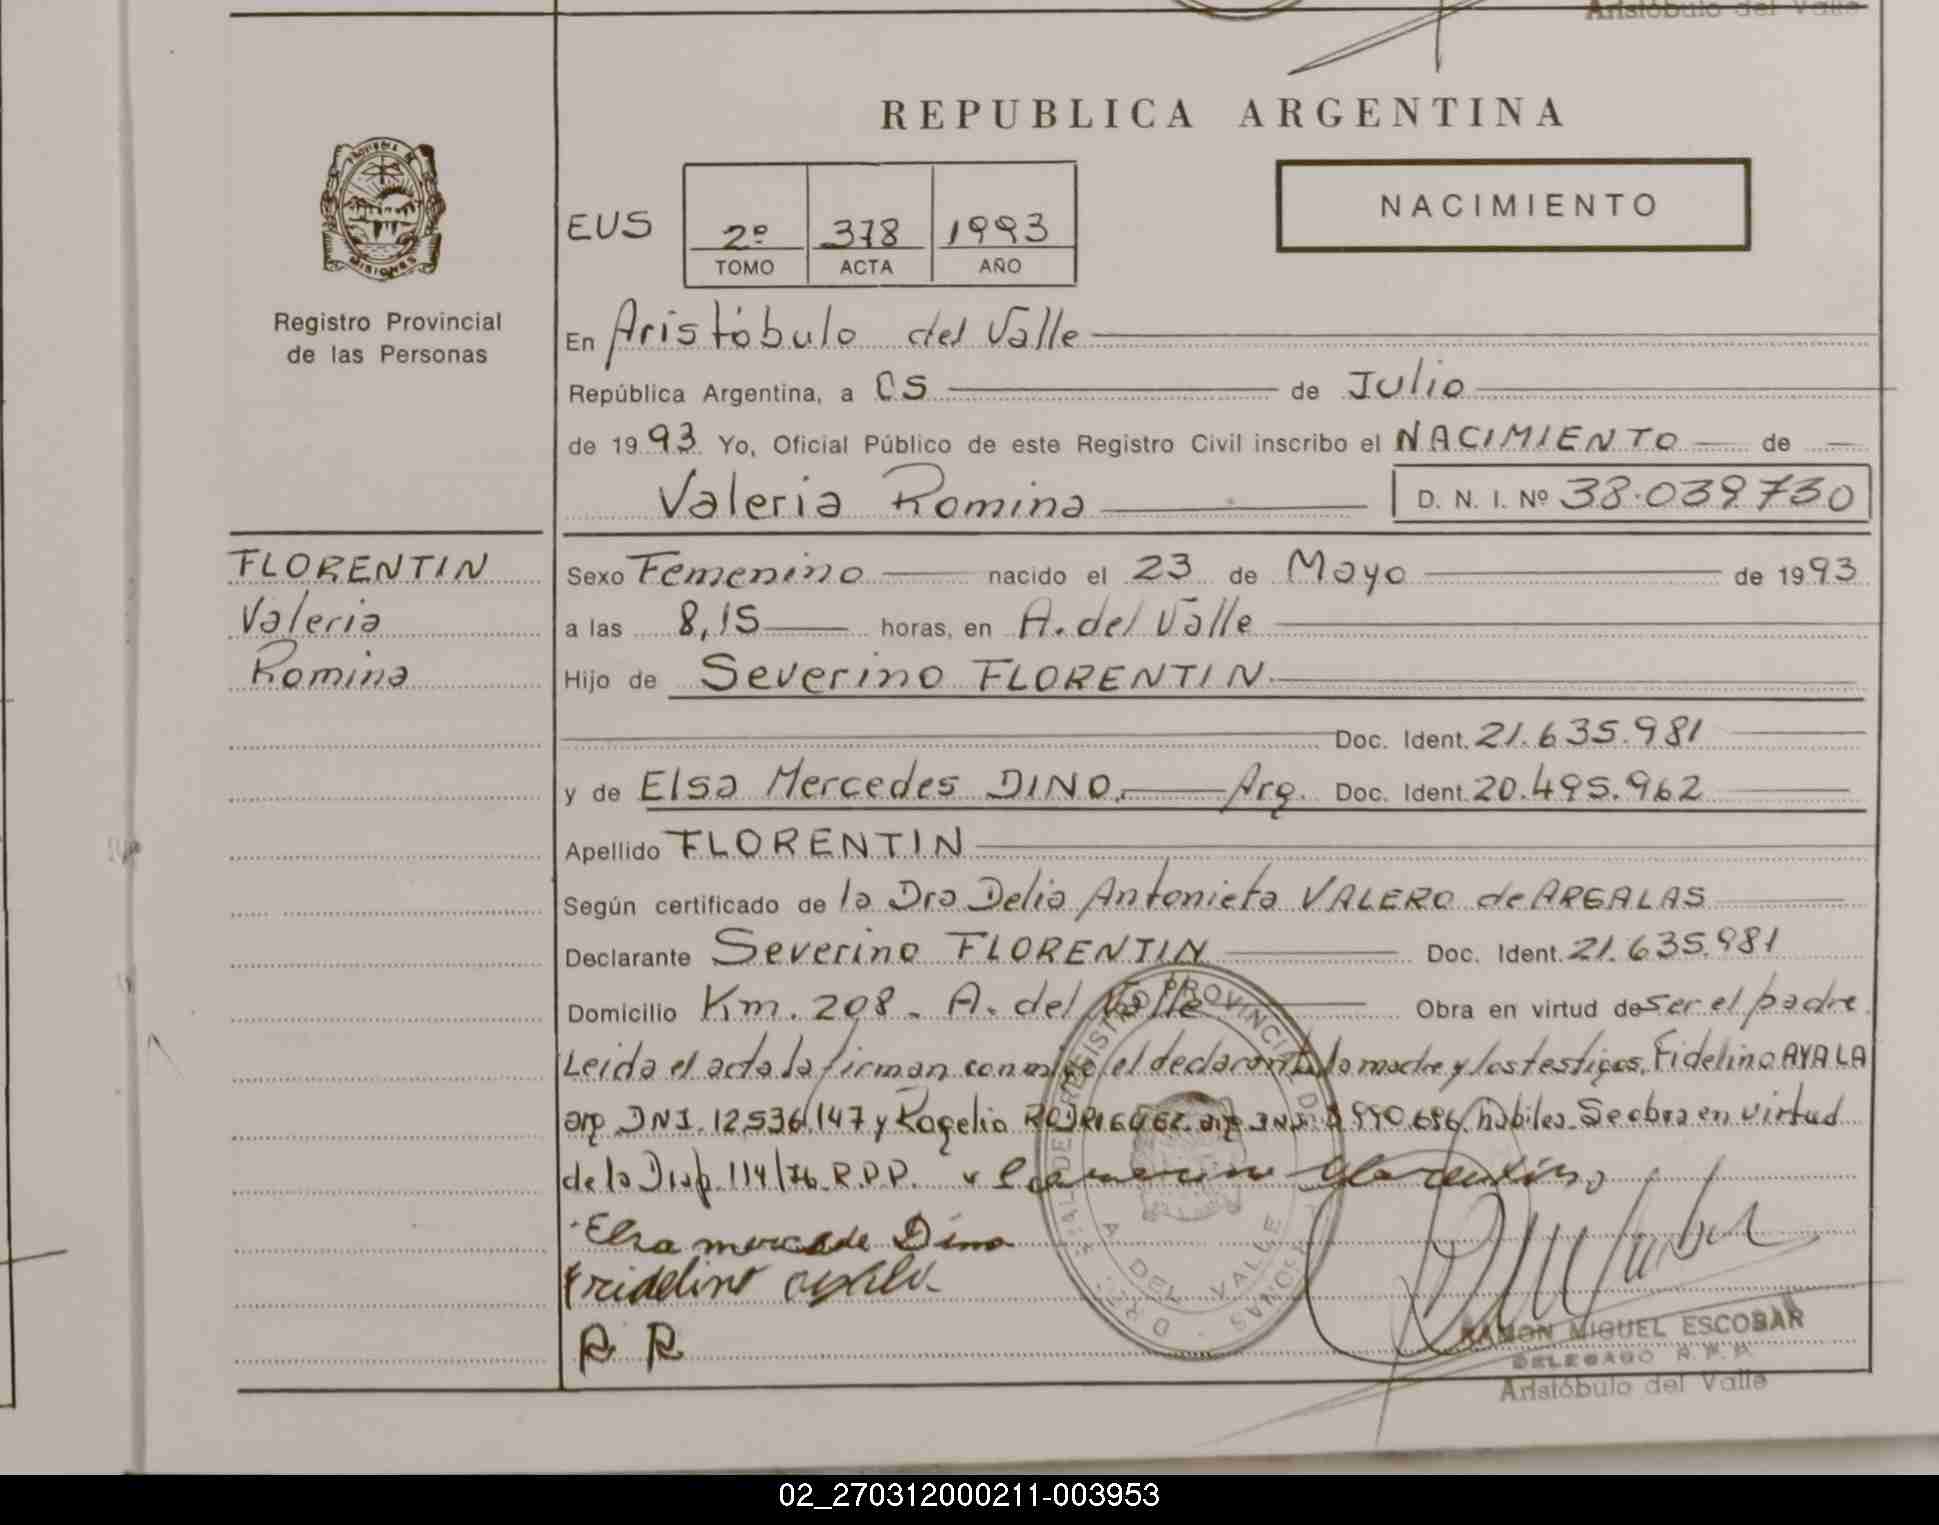 Aristóbulo del Valle
REPUBLICA ARGENTINA
NACIMIENTO
EUS
2º 378 1993
TOMO ACTA AÑO
PROVINCIA DE
MISIONES
Registro Provincial
de las Personas
En Aristóbulo del Valle
República Argentina, a 05 de Julio
de 1993 Yo, Oficial Público de este Registro Civil inscribo el NACIMIENTO de
Valeria Romina D. N. I. Nº 38.039.730
FLORENTIN
Valeria
Romina
Sexo Femenino nacido el 23 de Mayo de 1993
a las 8,15 horas, en A. del Valle
Hijo de Severino FLORENTIN
Doc. Ident. 21.635.981
y de Elsa Mercedes DINO. Arg. Doc. Ident. 20.495.962
Apellido FLORENTIN
Según certificado de la Dra Delia Antonieta VALERO de ARGALAS
Declarante Severino FLORENTIN Doc. Ident. 21.635.981
Domicilio Km. 208 - A. del Valle Obra en virtud de ser el padre.
Leida el acta la firman conmigo el declarante, la madre y los testigos, Fidelino AYALA
arg DNI. 12.536.147 y Rogelio RODRIGUEZ arg DNI. habiles. Se obra en virtud
de la Disp. 114/76 R.P.P.
Elsa mercede Dino
Fridelino ayala
R R
RAMON MIGUEL ESCOBAR
DELEGADO R.P.P.
Aristóbulo del Valle
02_270312000211-003953